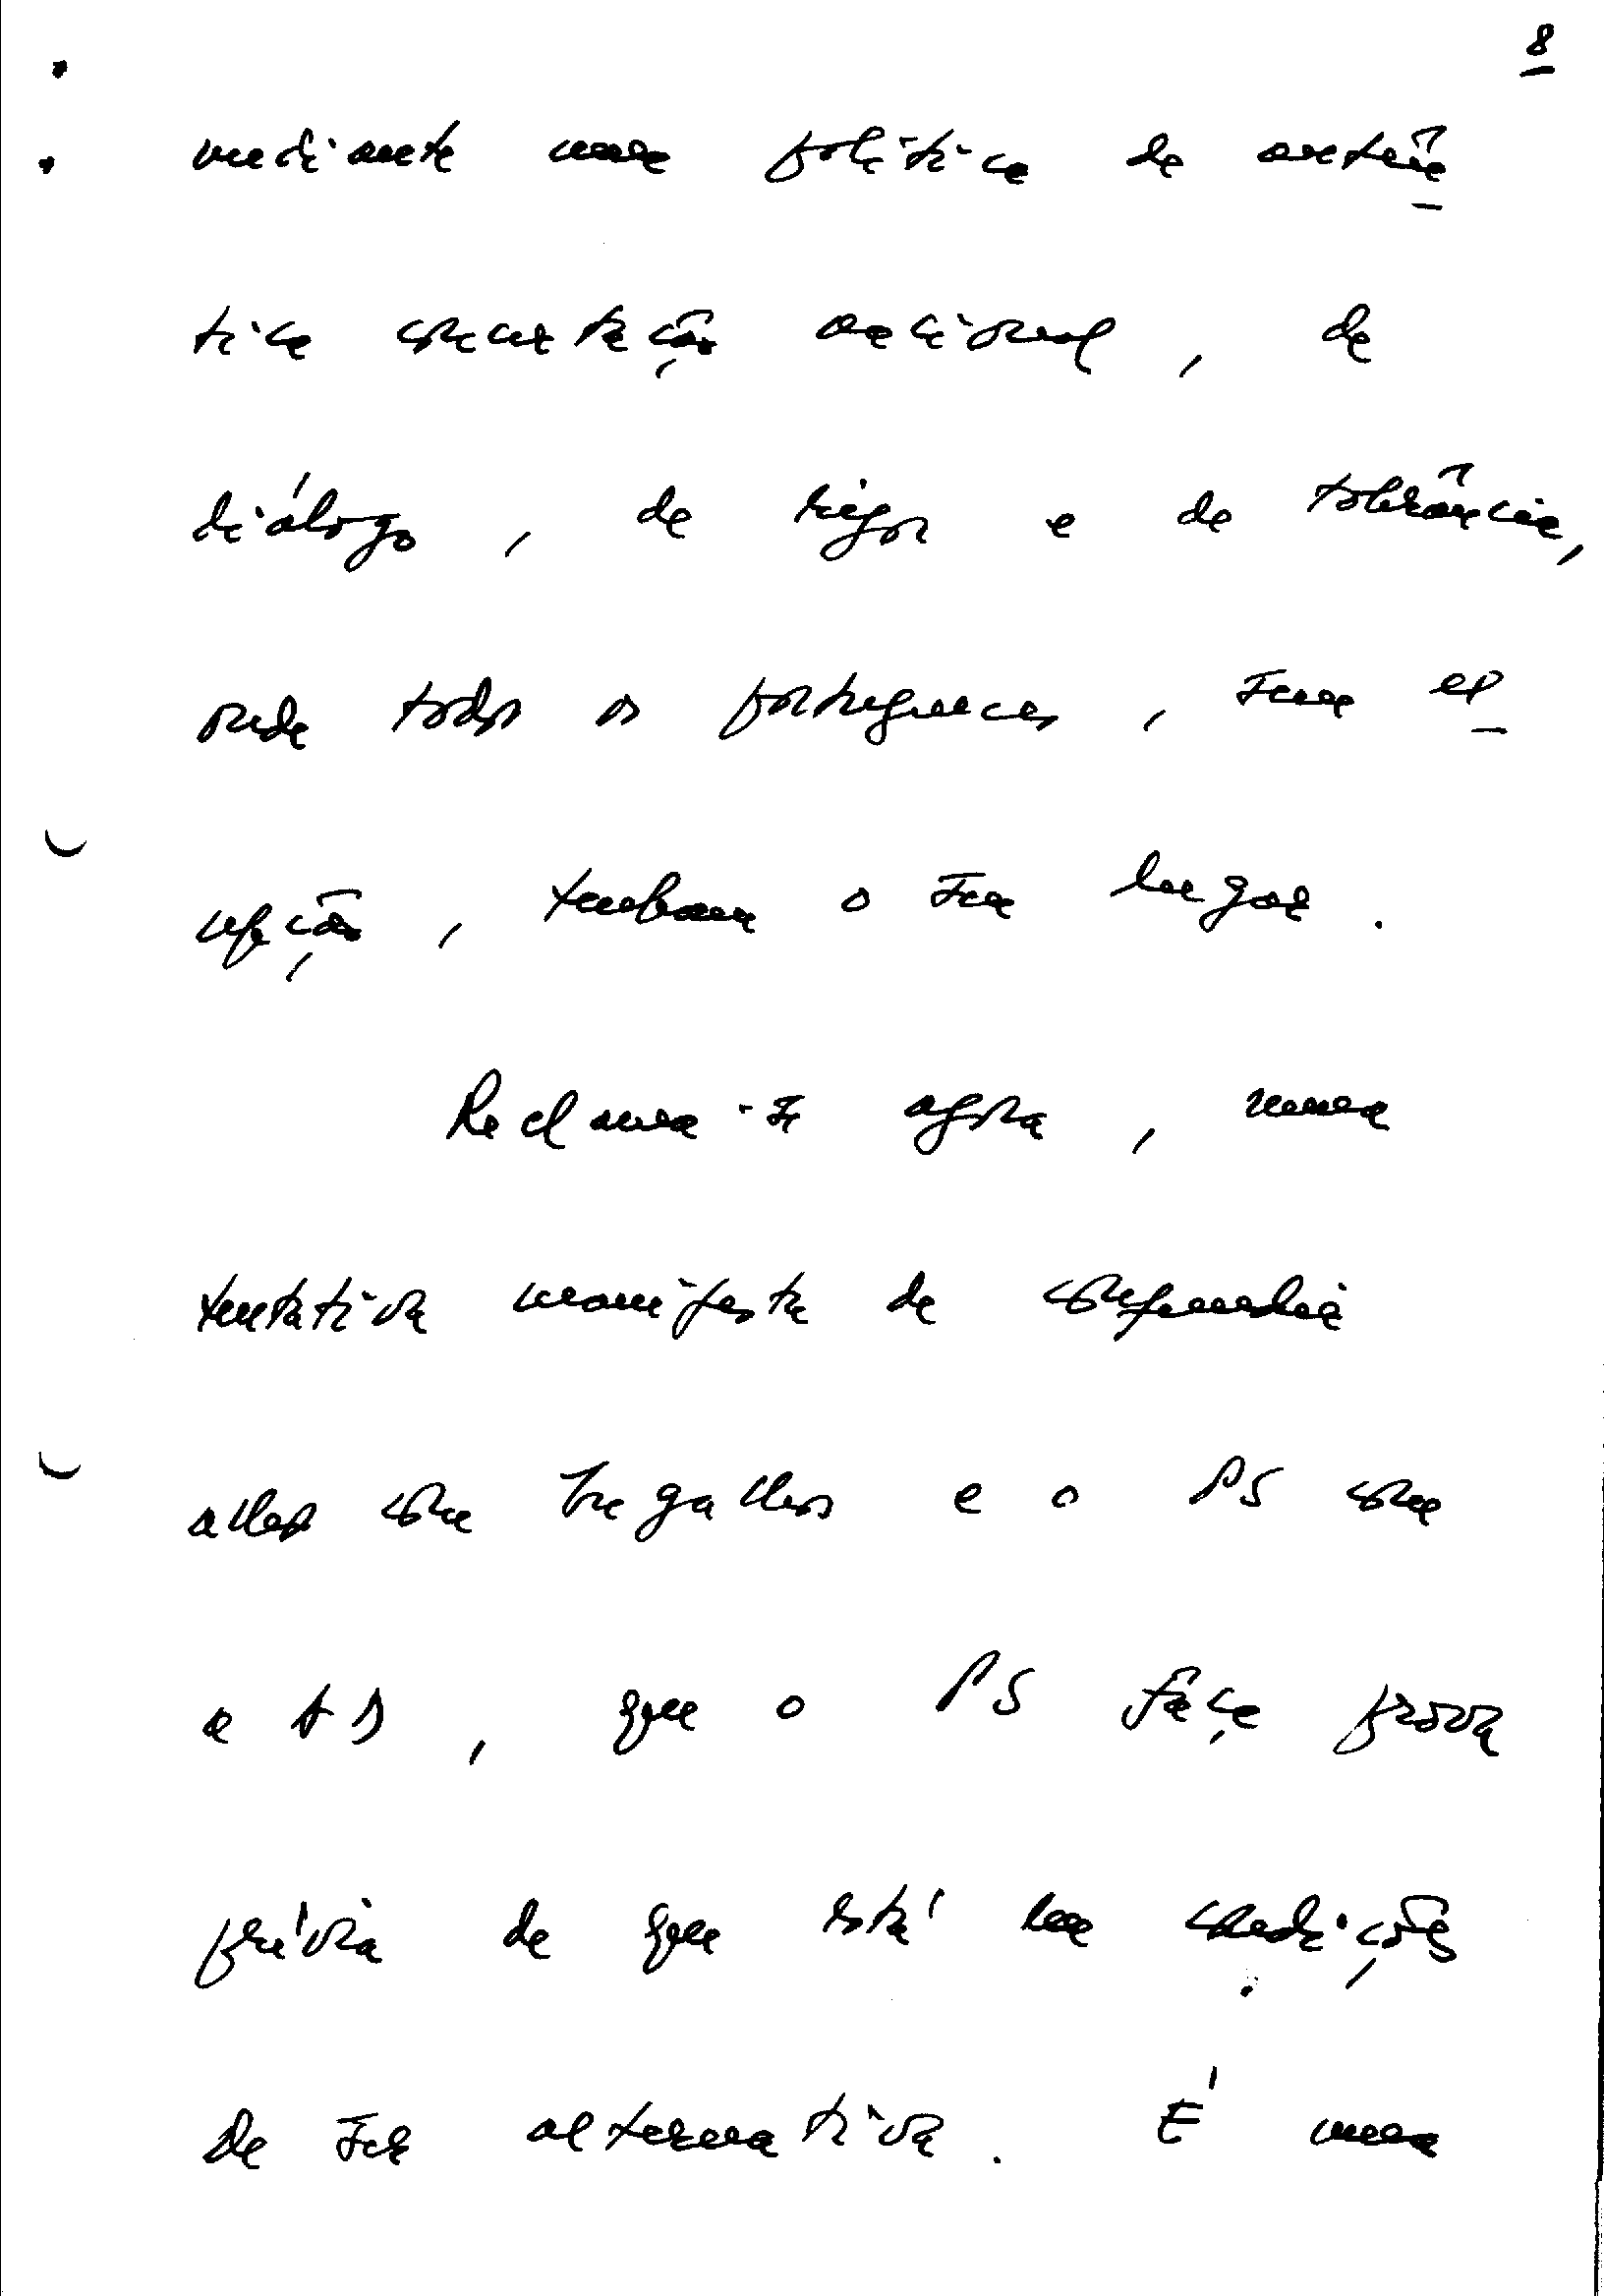 8
mediante uma política de autên
tica concertação nacional, de
diálogo, de rigor e de tolerância,
onde todos os portugueses, sem ex
cepção, tenham o seu lugar.
Reclama-se agora, numa
tentativa manifesta de confundir
alhos com bugalhos e o PS com
a AD, que o PS faça prova
prévia de que está em condições
de ser alternativa. É uma